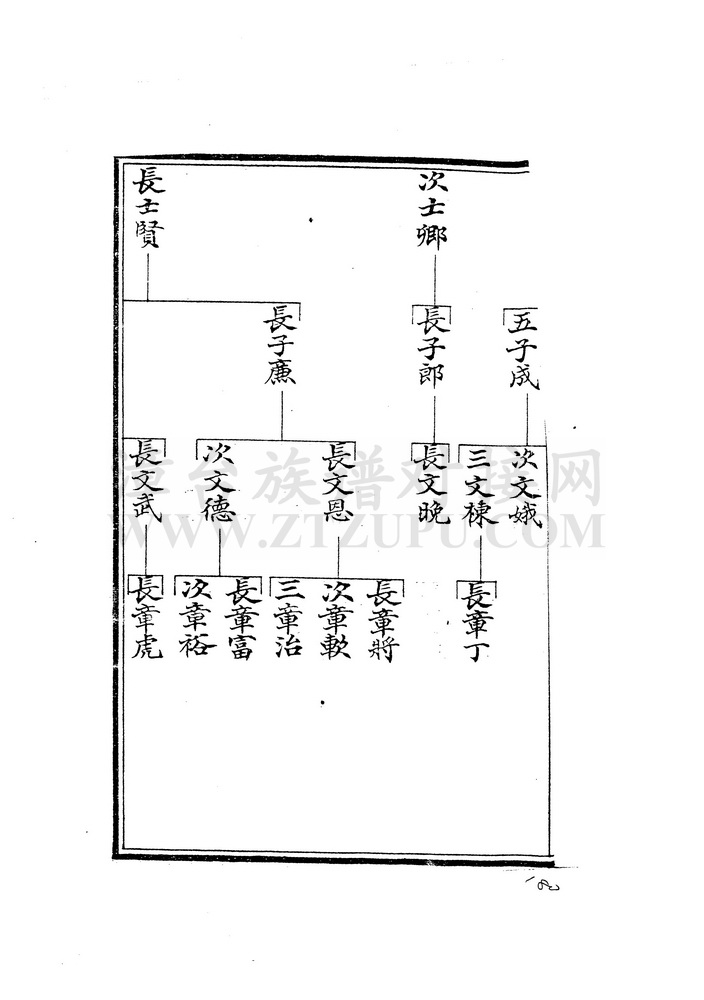 次士卿
長士賢
五子成
長子郎
長子廉
次文娥
三文棟
長文晚
長文恩
次文德
長文武
長章丁
長章將
次章軟
三章治
長章富
次章裕
長章虎
章台族谱对接网
WWW.ZTZUPU.COM